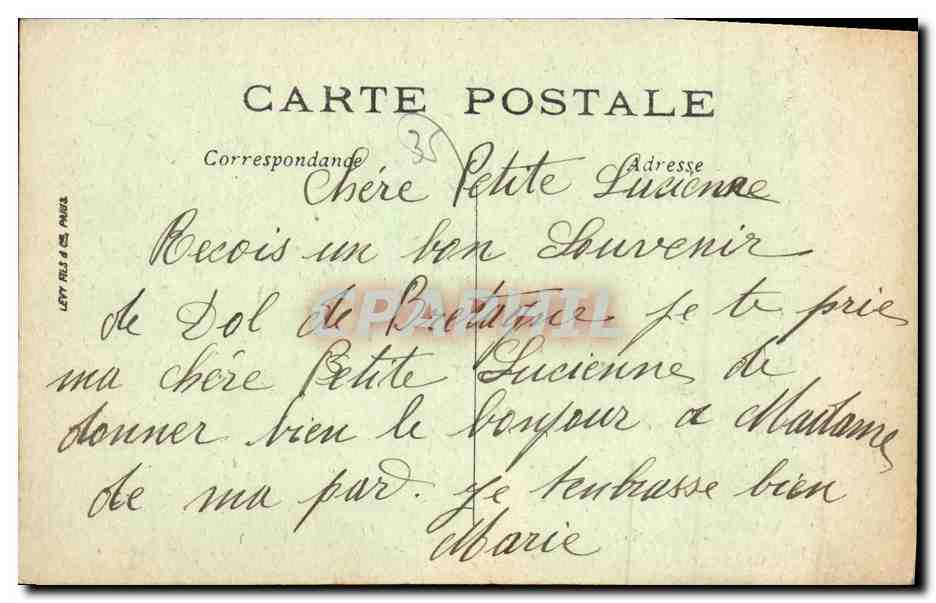 CARTE POSTALE
35
Correspondance
Adresse
Chére Petite Lucienne
Recois un bon Souvenir
de Dol de Bretagne. je te prie
ma chére Petite Lucienne de
donner bien le bonjour a Madame
de ma pard. je tenbrasse bien
Marie
LEVY FILS & Cie, PARIS
CPAPHIL